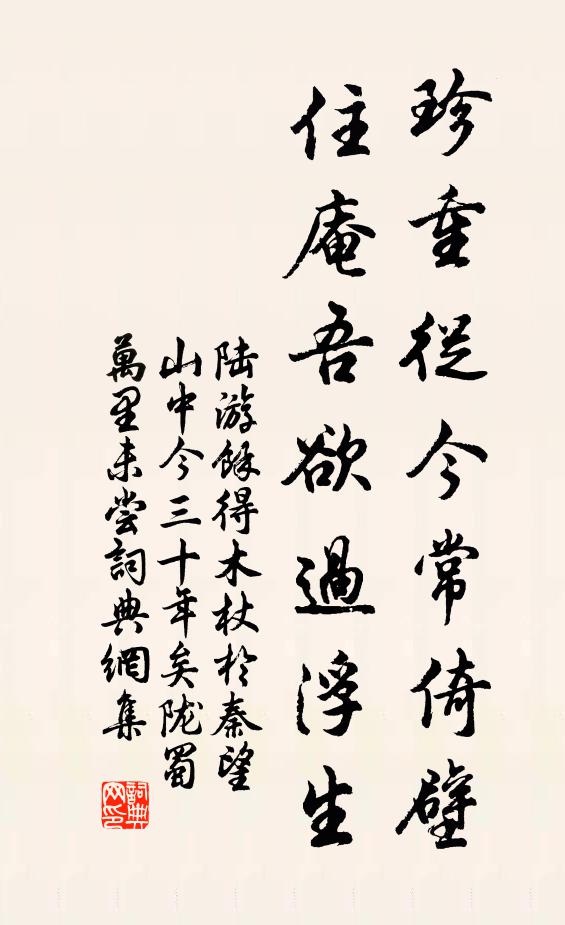 珍重從今常倚壁
住庵吾欲過浮生
陆游餘得木杖於秦望
山中今三十年矣陇蜀
萬里未嘗詞典網集
詞典
网印